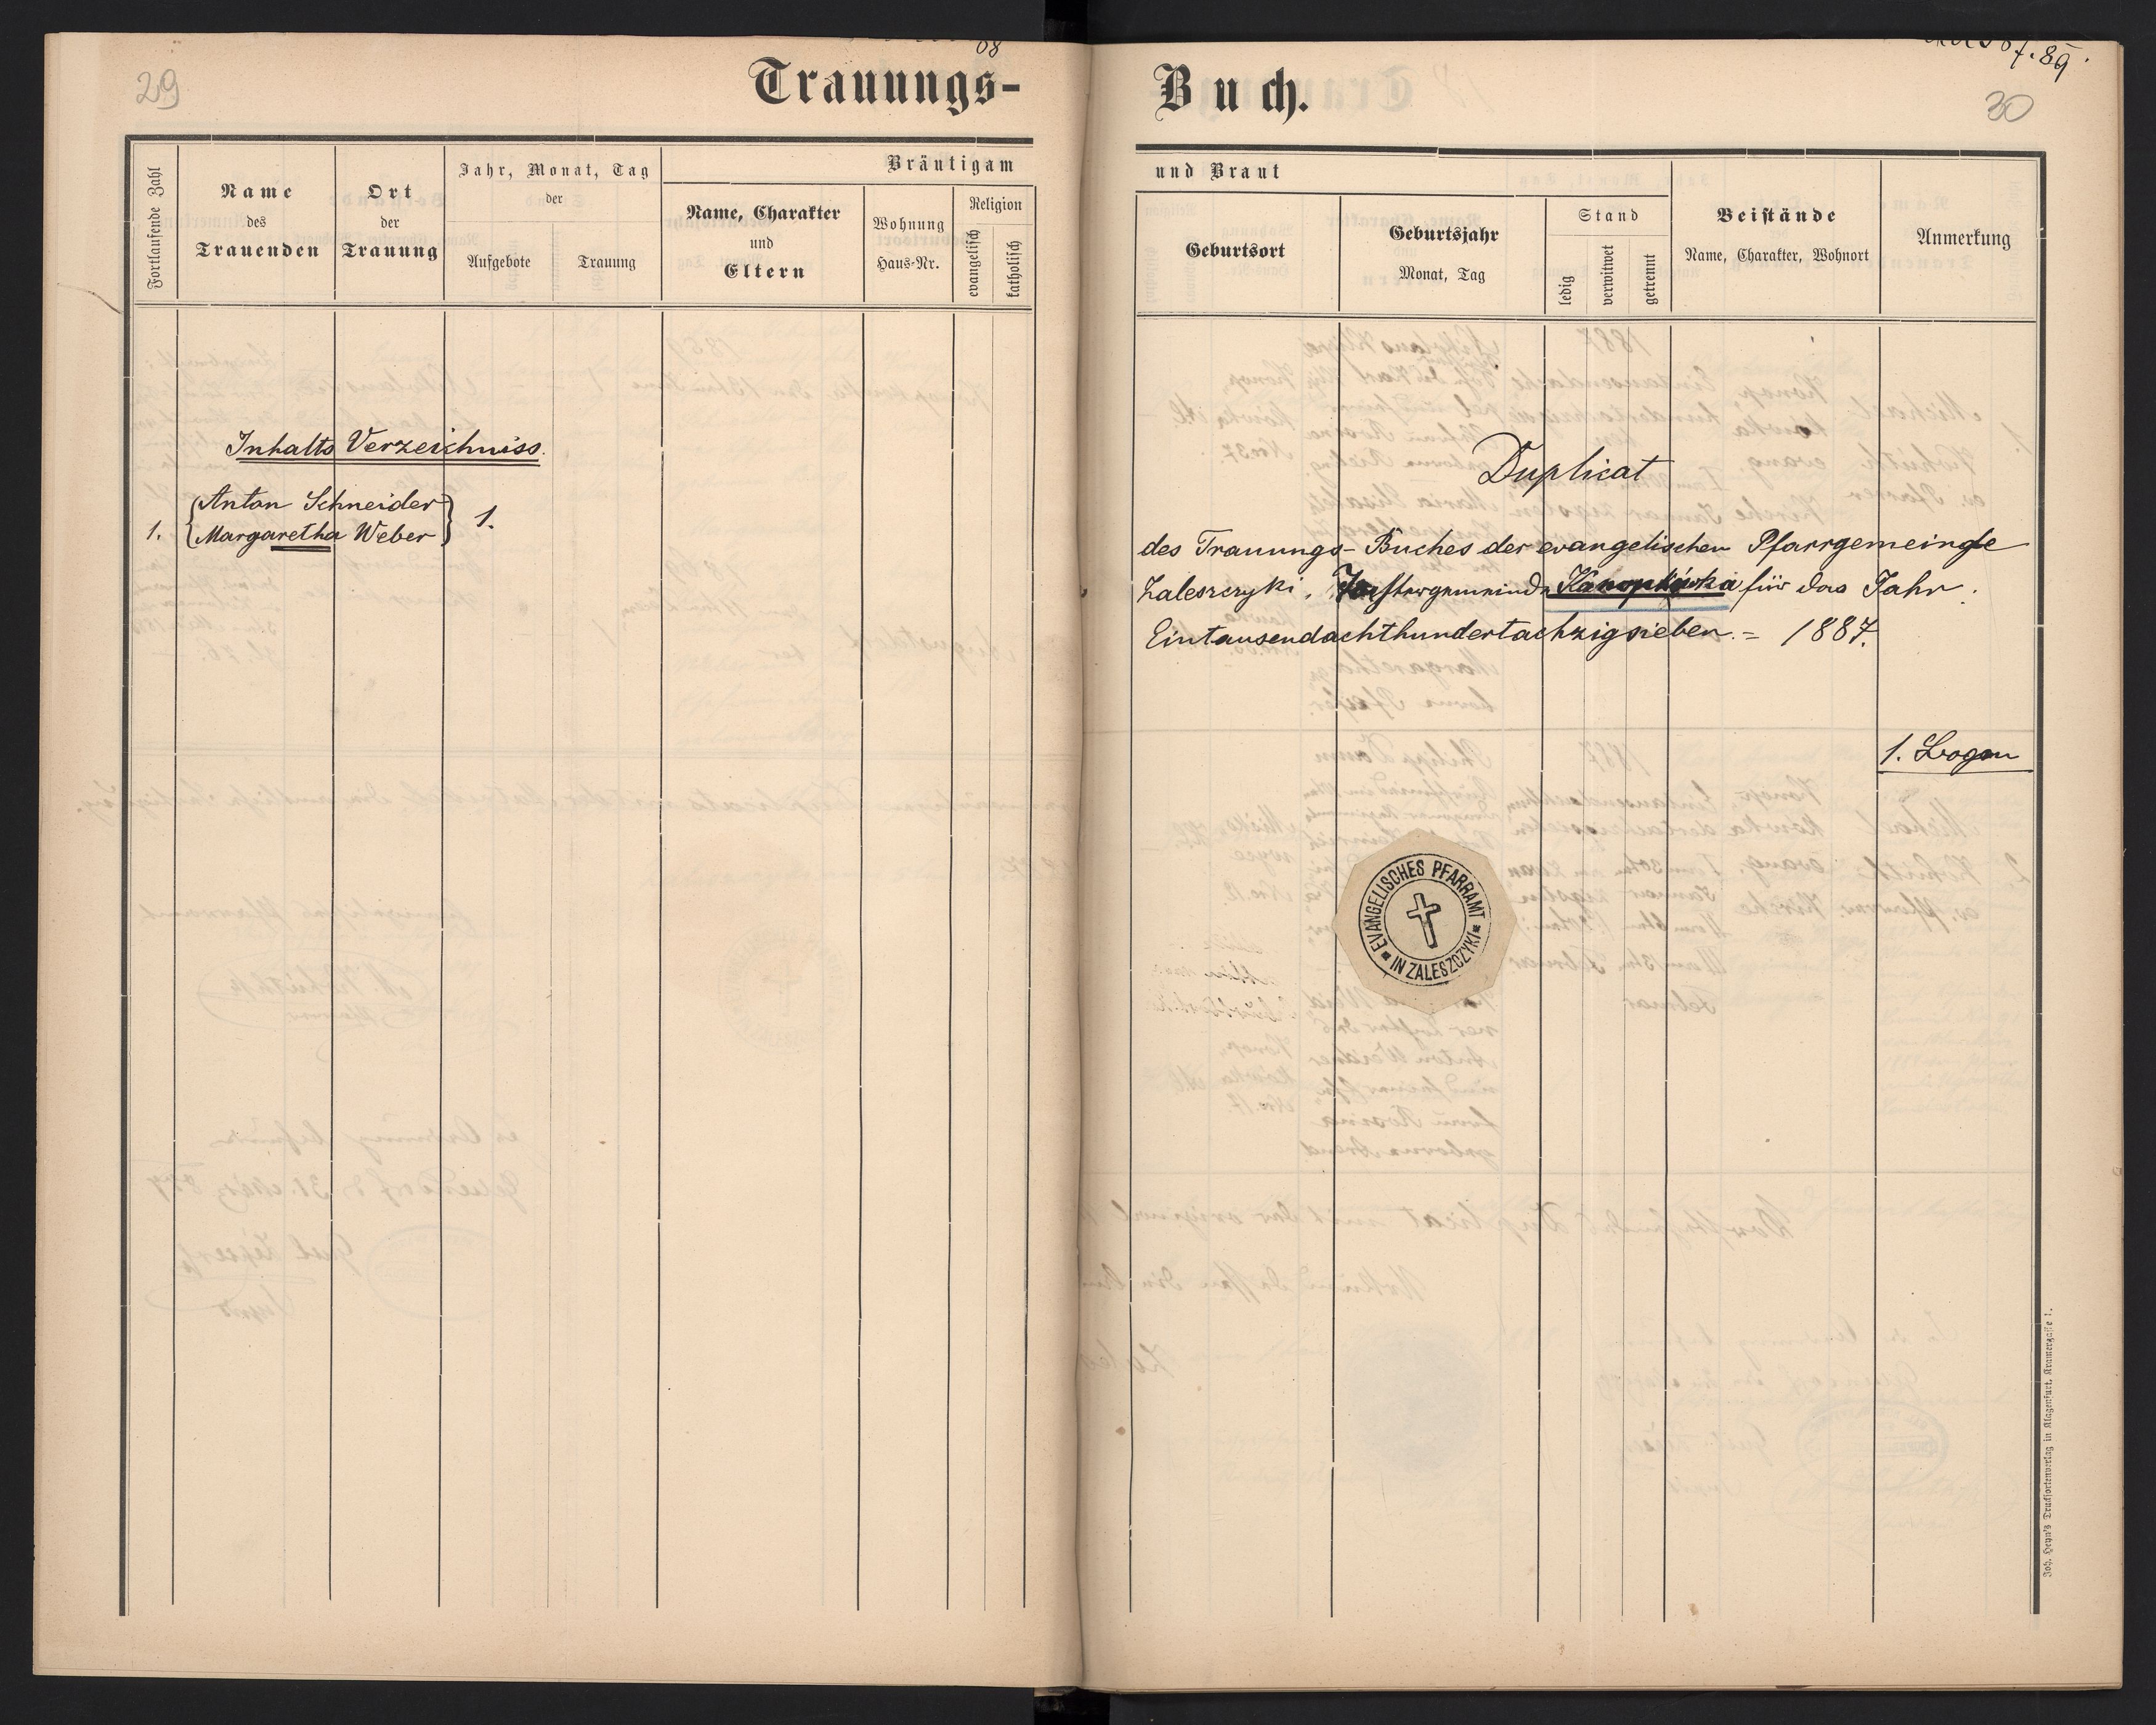 29
08
Trauungs-
Fortlaufende Zahl
Name
des
Trauenden
Ort
der
Trauung
Jahr, Monat, Tag
der
Aufgebote
Trauung
Bräutigam
Name, Charakter
und
Eltern
Wohnung
Haus-Nr.
Religion
evangelisch
katholisch
Inhalts Verzeichniss.
1. {Anton Schneider
Margaretha Weber} 1.
89.
30
Buch.
und Braut
Geburtsort
Geburtsjahr
Monat, Tag
Stand
ledig
verwitwet
getrennt
Beistände
Name, Charakter, Wohnort
Anmerkung
Duplicat
des Trauungs-Buches der evangelischen Pfarrgemeinde
Zaleszczyki, für das Jahr
Eintausendachthundertachzigsieben.= 1887.
1. Bogen
EVANGELISCHES PFARRAMT
* IN ZALESZCZYKI *
Joh. Heyn's Drucksortenverlag in Klagenfurt, Kramergasse 1.